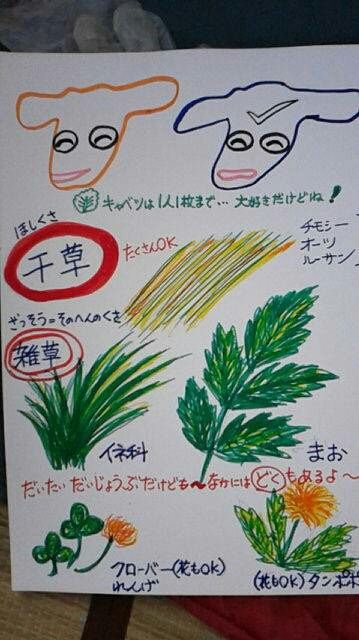 キャベツは1人1枚まで… 大好きだけどね!
ほしくさ
干草
たくさんOK
チモシー
オーツ
ルーサン
ざっそう=そのへんのくさ
雑草
イネ科
まお
だいたい だいじょうぶだけども〜なかにはどくもあるよ〜
クローバー(花もOK)
れんげ
(花もOK)タンポポ